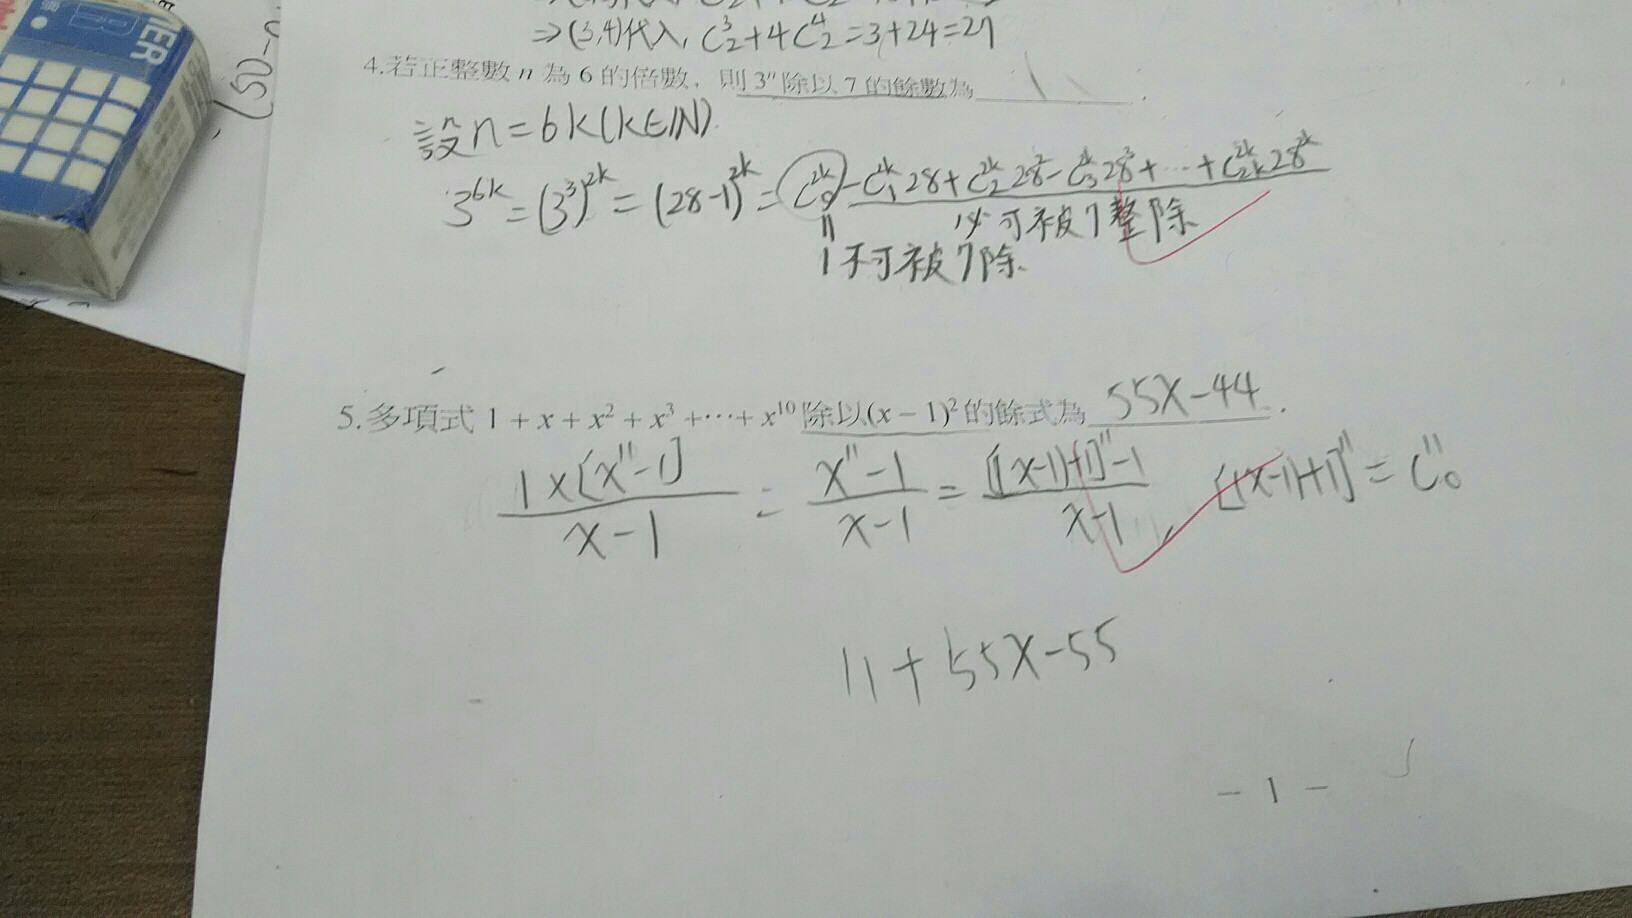 ⇒(3,4)代入, C³₂+4C⁴₂=3+24=27
4.若正整數 n 為 6 的倍數，則 3ⁿ 除以 7 的餘數為 1 .
設n=6k(k∈N).
3⁶ᵏ=(3³)²ᵏ=(28-1)²ᵏ=C²ᵏ₀-C²ᵏ₁28+C²ᵏ₂28²-C²ᵏ₃28³+…+C²ᵏ₂ₖ28²ᵏ
必可被7整除
1不可被7除.
5.多項式 1 + x + x² + x³ +⋯+ x¹⁰ 除以(x − 1)² 的餘式為 55x-44 .
1×[x¹¹-1]/x-1 = x¹¹-1/x-1 = [(x-1)+1]¹¹-1/x-1 , [(x-1)+1]¹¹=C¹¹₀
11+55x-55
- 1 -
(50-n
IER